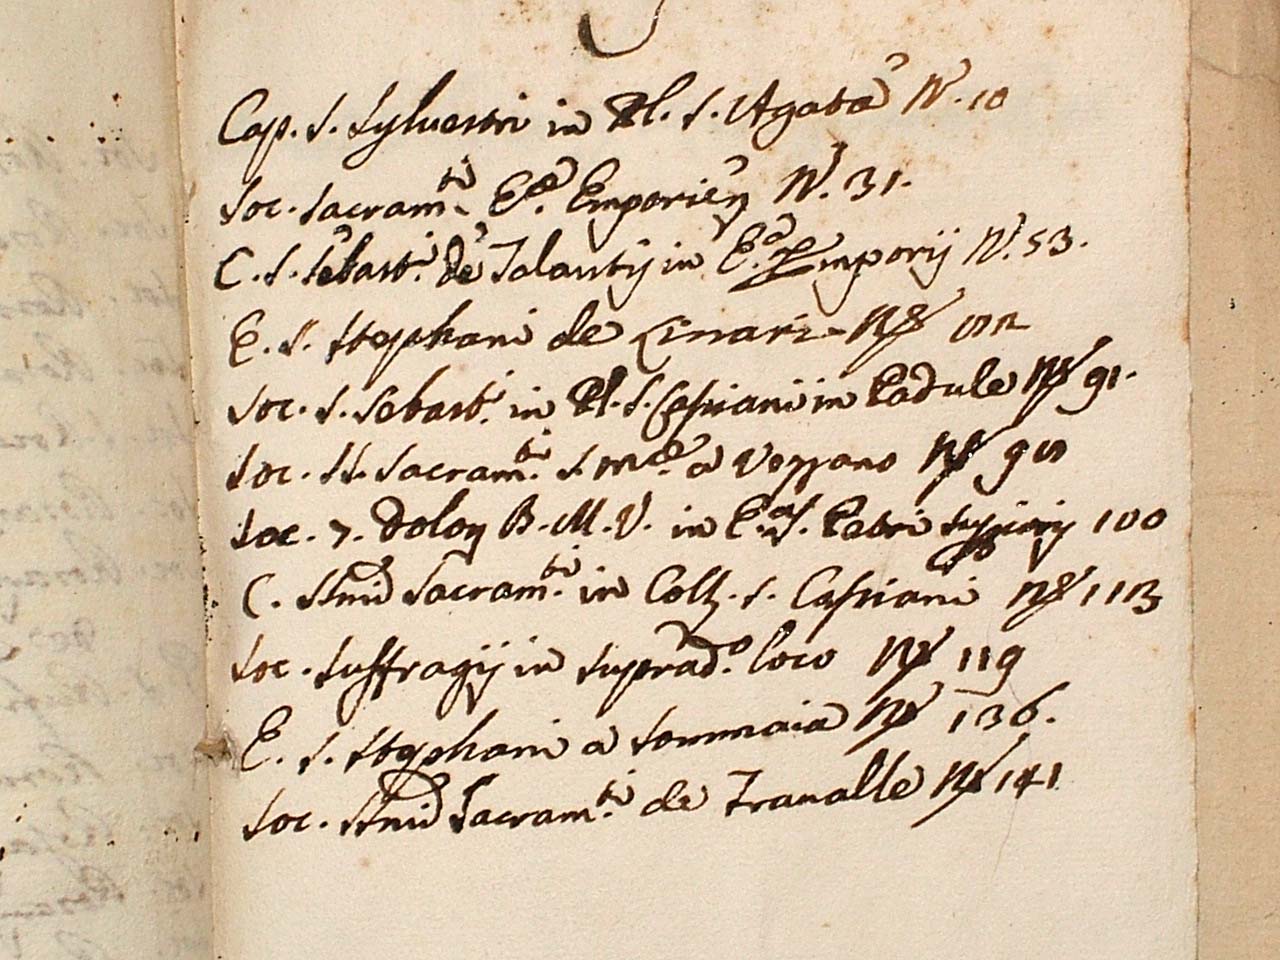 Cap. S. Sylvestri in Pl. S. Agatæ N. 10
Soc. Sacram.ti E.æ Emporien N. 31.
C. S. Sebast.i de Talantij in E.a Emporij N. 53.
E. S. Stephani de Linari N.
Soc. S. Sebast.i in Pl. S. Cassiani in Padule N. 91.
Soc. SS. Sacram.ti S. M.æ a Vezzano N.
Soc. 7. Dolor B. M. V. in E.a S. Petri 100
C. SSmi Sacram.ti in Coll. S. Cassiani N. 113
Soc. Suffragij in suprad.o loco N. 119
E. S. Stephani a Sommaia N. 136.
Soc. SSmi Sacram.ti de Travalle N. 141